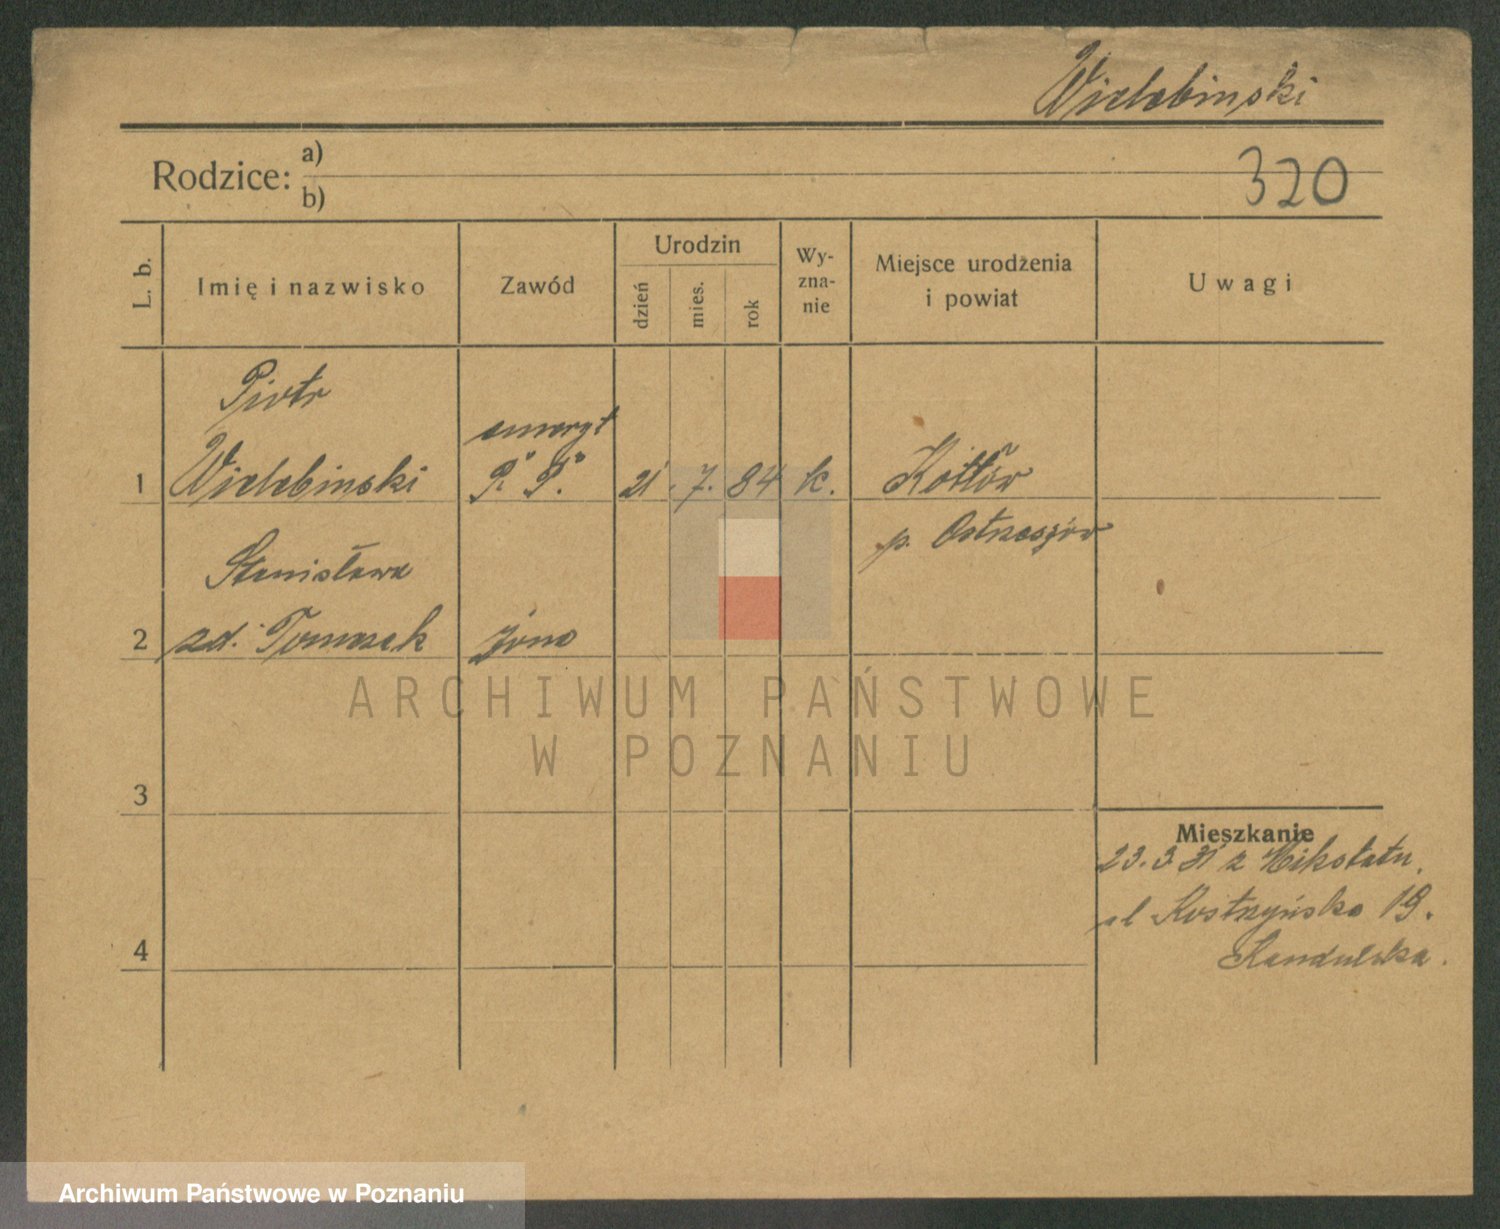 Wielebinski
Rodzice: a)
b)
320
L. b.
Imię i nazwisko
Zawód
Urodzin
dzień
mies.
rok
Wy-
zna-
nie
Miejsce urodżenia
i powiat
Uwagi
Piotr
emeryt
1 Wielebinski P. P. 21. 7. 84 k. Kotłów
p. Ostrzeszów
Stanisława
2 zd. Tomasek żona
3
Mieszkanie
23.3.31 z Mikstatu.
ul Kostrzyńska 19.
Kandulska.
4
ARCHIWUM PAŃSTWOWE
W POZNANIU
Archiwum Państwowe w Poznaniu